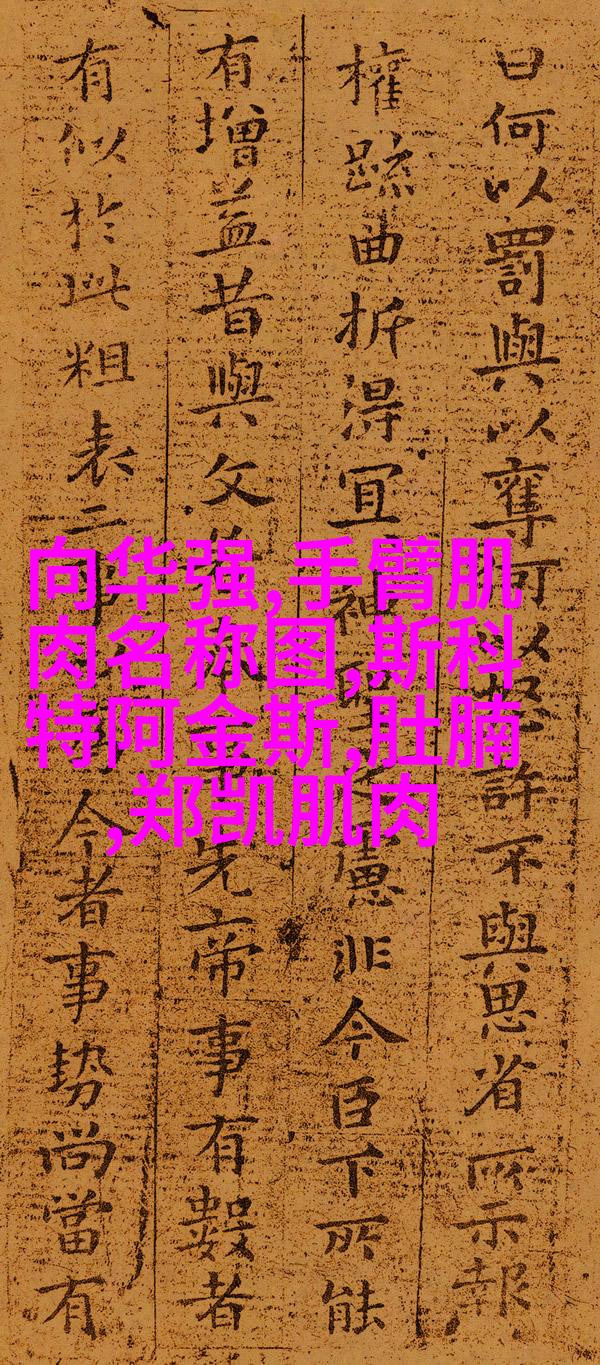 曰何以罰與以奪何以怒許不與思省所示報
權疏曲折得宜神聖之慮非今臣下所能
有增益昔與文先帝事有數者
有似於此粗表二事今者事勢尚當有
向华强,手臂肌
肉名称图,斯科
特阿金斯,肚腩
,郑凯肌肉